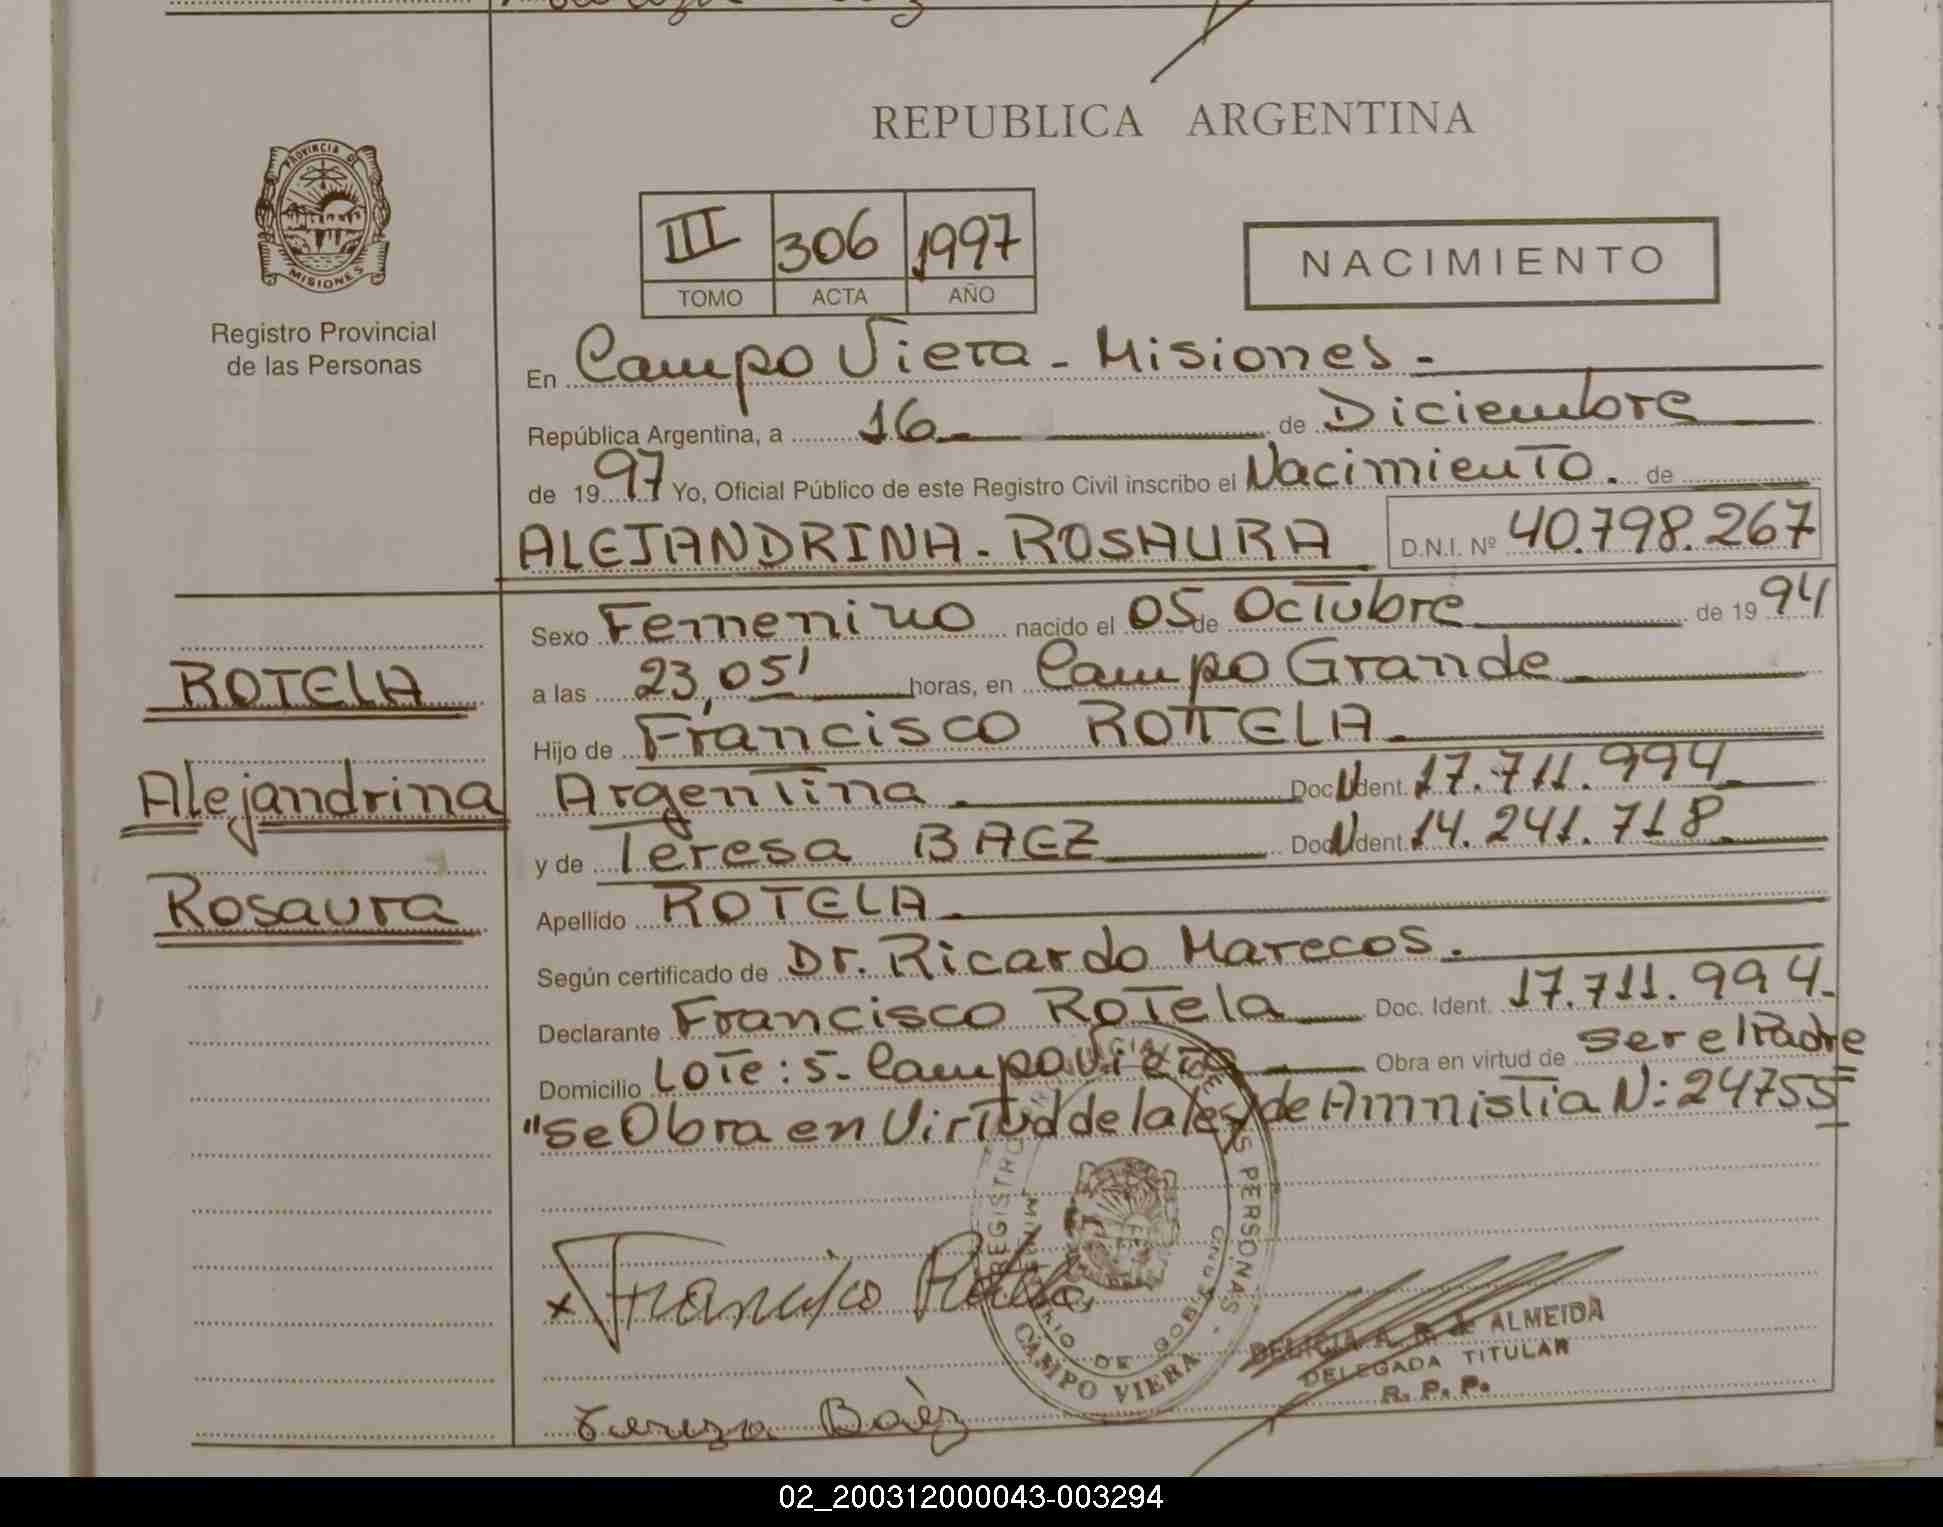 REPUBLICA ARGENTINA
PROVINCIA DE
MISIONES
Registro Provincial
de las Personas
III 306 1997
TOMO ACTA AÑO
NACIMIENTO
En Campo Viera - Misiones -
República Argentina, a 16 de Diciembre
de 1997 Yo, Oficial Público de este Registro Civil inscribo el Nacimiento. de
ALEJANDRINA - ROSAURA D.N.I. Nº 40.798.267
ROTELA
Alejandrina
Rosaura
Sexo Femenino nacido el 05 de Octubre de 1994
a las 23,05' horas, en Campo Grande
Hijo de Francisco ROTTELA
Argentina Doc. Ident. 17.711.994
y de Teresa BAEZ Doc. Ident. 14.241.718
Apellido ROTELA
Según certificado de Dr. Ricardo Marecos.
Declarante Francisco Rotela Doc. Ident. 17.711.994
Domicilio Lote: 5 - Campo Viera Obra en virtud de ser el Padre
"Se Obra en Virtud de la ley de Amnistia N: 24755"
x Francisco Rotela
CAMPO VIERA
DELICIA A. R. de ALMEIDA
DELEGADA TITULAR
R. P. P.
Tereza Baéz
02_200312000043-003294